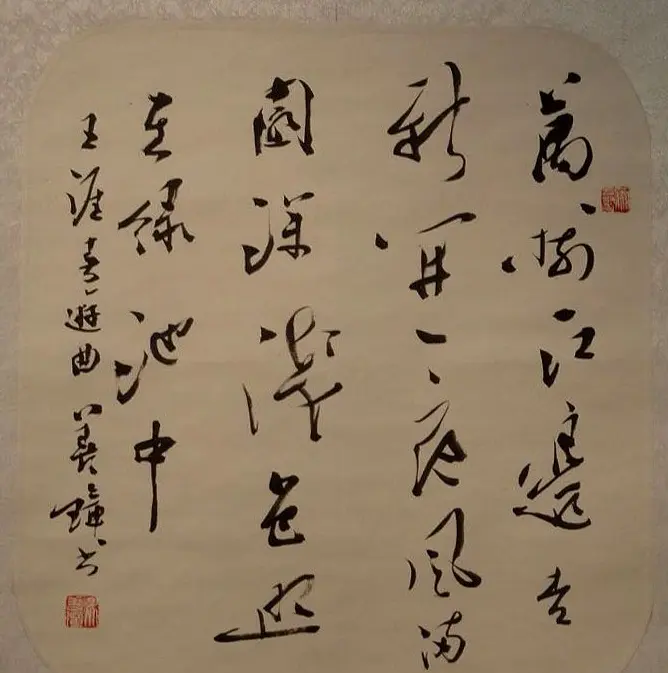 萬樹江邊杏
新開一夜風滿
園深淺色照
在綠池中
王涯春遊曲 书